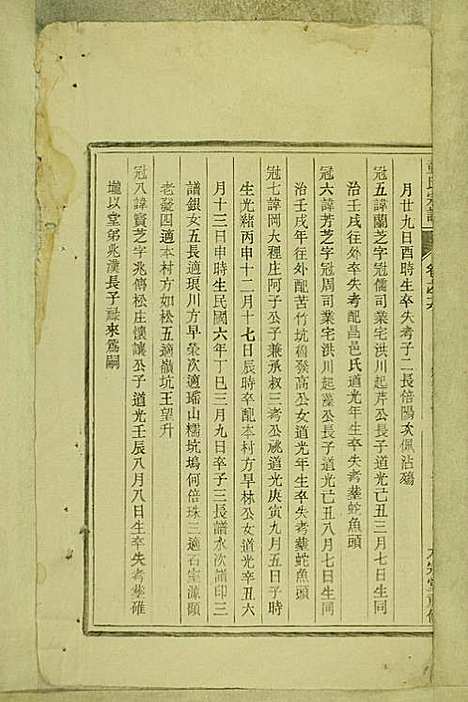 月廿九日酉時生卒失考子二長倍陽次佩沾殤
冠五諱蘭芝字冠儒司業宅洪川起芹公長子道光己丑三月七日生同
治壬戌往外卒失考配昌邑氏道光年生卒失考葬蛇魚頭
冠六諱芳芝字冠周司業宅洪川起藻公長子道光己丑八月七日生同
治壬戌年往外配苦竹坑發高公女道光年生卒失考葬蛇魚頭
冠七諱岡大種庄阿子公子兼承叔三考公祧道光庚寅九月五日子時
生光緒丙申十二月十七日辰時卒配本村方早林公女道光辛丑六
月十三日申時生民國六年丁巳三月九日卒子三長譜水次譜印三
譜銀女五長適環川方早榮次適璠山糯坑塢何倍珠三適石室源頤
老發四適本村方如松五適嶺坑王望升
冠八諱寶芝字兆傳松庄懷讓公子道光壬辰八月八日生卒失考葬碓
壠以堂弟兆漢長子祿來爲嗣